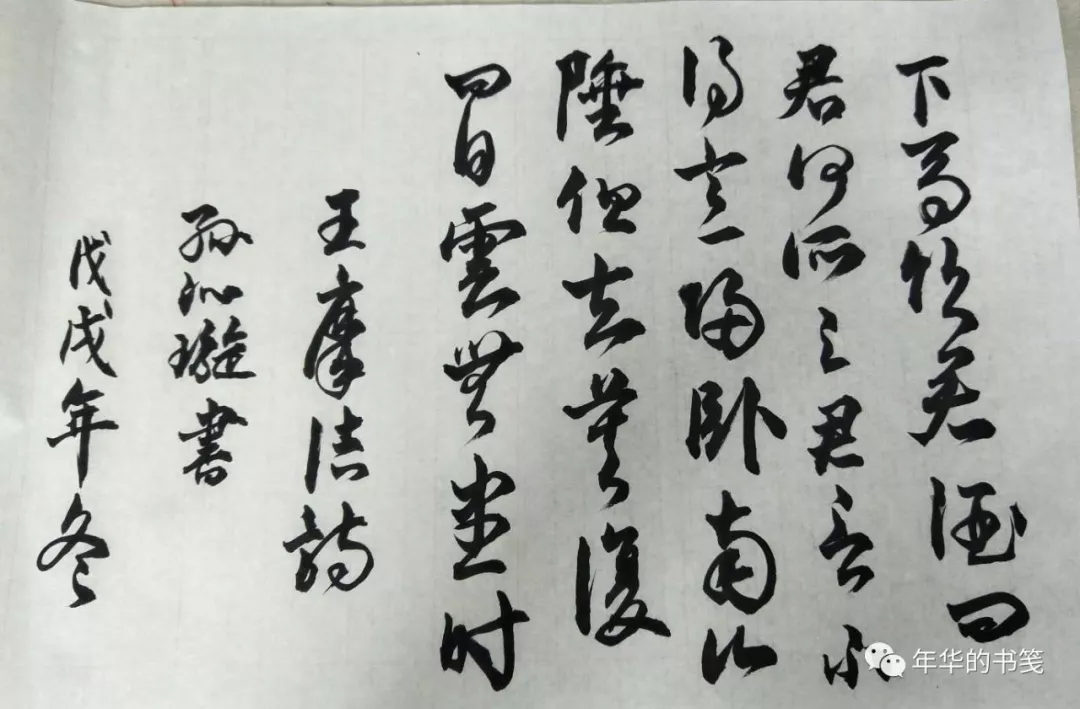 下馬飲君酒問
君何所之君言不
得意歸卧南山
陲但去莫復
問白雲無盡时
王摩诘詩
孫沁璇書
戊戌年冬
年华的书笺